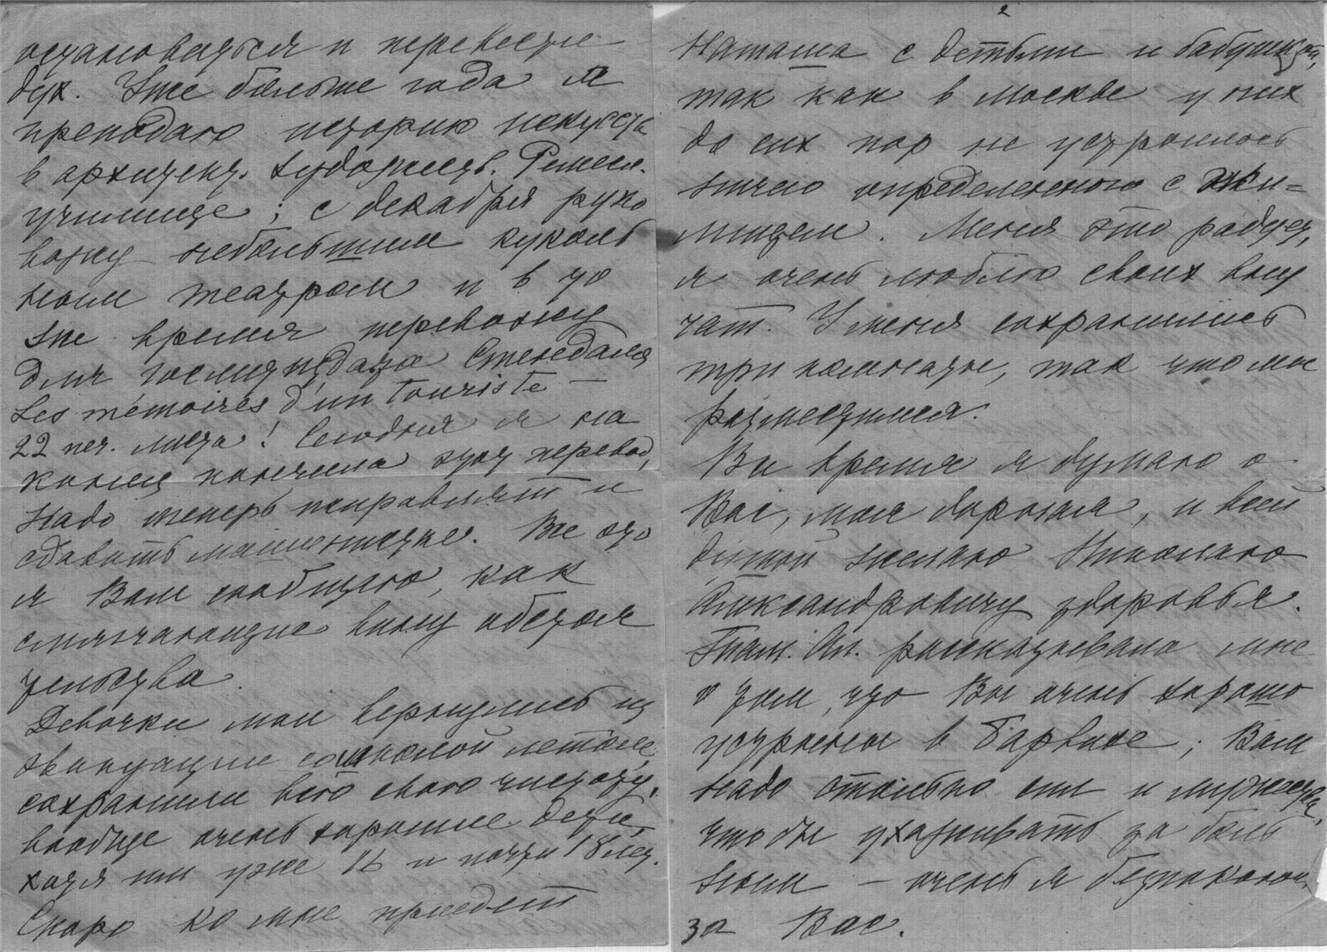 остановиться и перевести
дух. Уже больше года я
преподаю историю искусств
в архитект. художеств. Ремесл.
училище; с декабря руко
вожу небольшим куколь
ным театром и в то
же время перевожу
для Гослитиздата Стендаля
Les mémoires d'un touriste –
22 печ. листа! Сегодня я на
конец кончила эту перевод,
надо теперь исправлять и
сдавать машинистке. Все это
я Вам сообщаю, как
смягчающие вину обстоя
тельства.
Девочки мои вернулись из
эвакуации со школой летом,
сохранили всю свою чистоту,
вообще очень хорошие дети,
хотя им уже 16 и почти 18 лет.
Скоро ко мне приедет
2
Наташа с детьми и бабушкой,
так как в Москве у них
до сих пор не устроилось
ничего определенного с жи=
лищем. Меня это радует,
я очень люблю своих вну
чат. У меня сохранились
три комнаты, так что мы
разместимся.
Все время я думаю о
Вас, моя дорогая, и всей
душой желаю Николаю
Александровичу здоровья.
Нат. Ал. рассказывала мне
о том, что Вы очень хорошо
устроены в Барвихе; Вам
надо столько сил и мужества,
чтобы ухаживать за боль
ным – очень я беспокоюсь
за Вас.